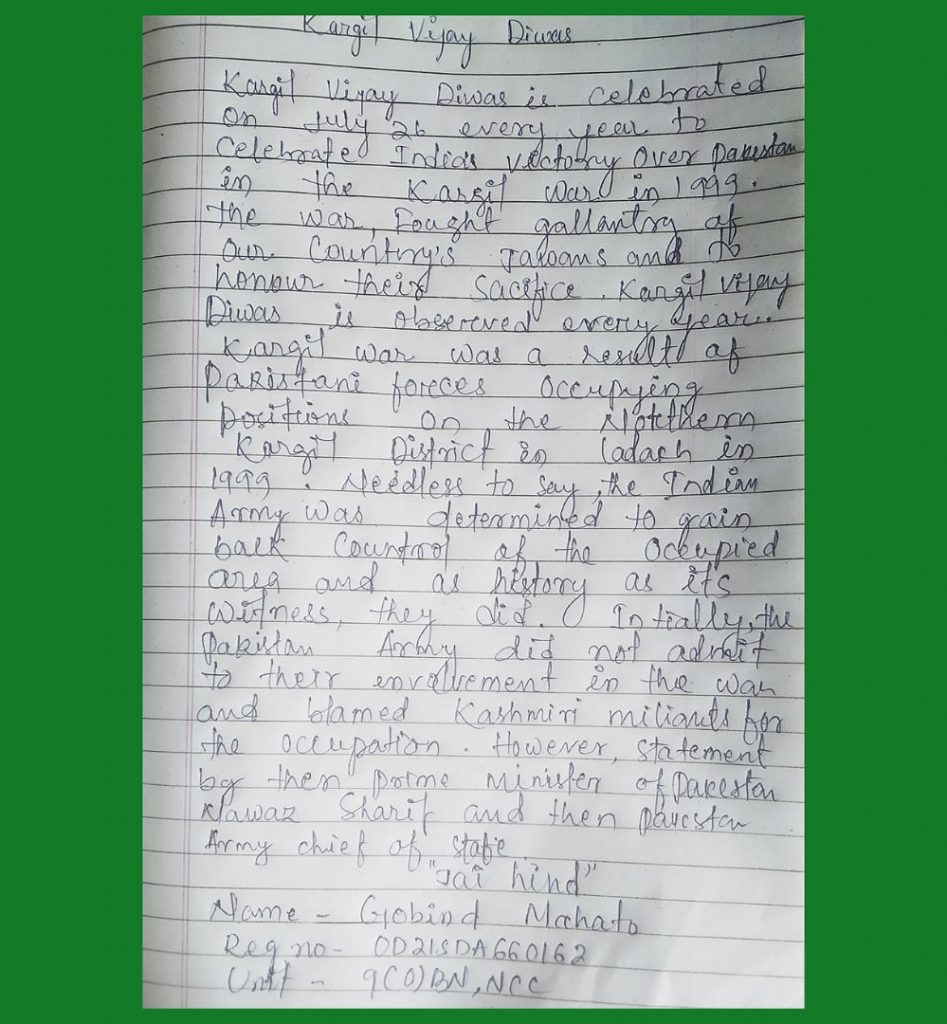 Kargil Vijay Diwas
Kargil Vijay Diwas is celebrated
on July 26 every year to
Celebrate India's victory over Pakestan
in the Kargil war in 1999.
the war, Fought gallantry of
our Country's Jaloans and to
honour their Sacifice. Kargil vijay
Diwas is observed every year..
Kargil war was a result of
Pakistani forces occupying
positions on the Notthern
Kargil District in Ladach in
1999. Needless to say, the Indian
Army was determined to gain
back Countrol of the Occupied
area and as history as its
witness, they did. Intially, the
Pakistan Army did not admit
to their envolvement in the war
and blamed Kashmiri miliants for
the occupation. However, statement
by then prime minister of Pakestan
Nawaz Sharif and then Pakestan
Army chief of stafe
"Jai hind"
Name - Gobind Mahato
Reg no- OD21SDA660162
Unit - 9(O)BN, NCC